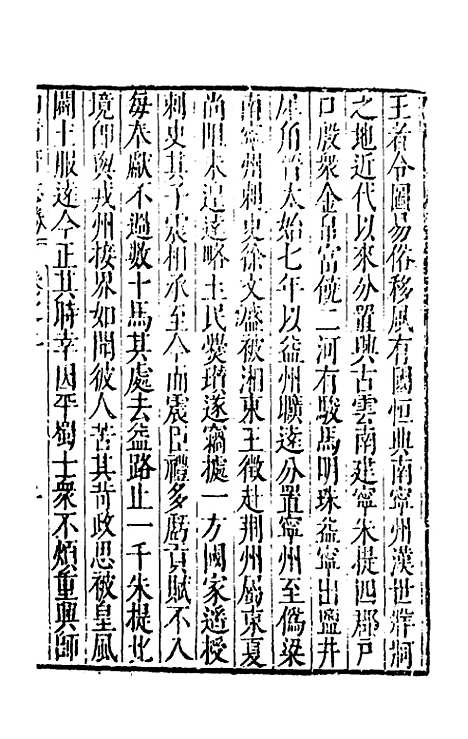 王者今圖易俗移風有國恒典南寧州漢世牂牁
之地近代以來分置興古雲南建寧朱提四郡戶
口殷衆金帛富饒二河有駿馬明珠益寧出鹽井
犀角晉太始七年以益州曠遠分置寧州至僞梁
南寧州刺史徐文盛被湘東王徵赴荆州屬東夏
尚阻未遑遠略土民爨瓚遂竊據一方國家遥授
刺史其子震相承至今而震臣禮多虧貢賦不入
每奉獻不過數十馬其處去益路止一千朱提北
境卽與戎州接界如聞彼人苦其苛政思被皇風
闢土服遠今正其時幸因平蜀士衆不煩重興師